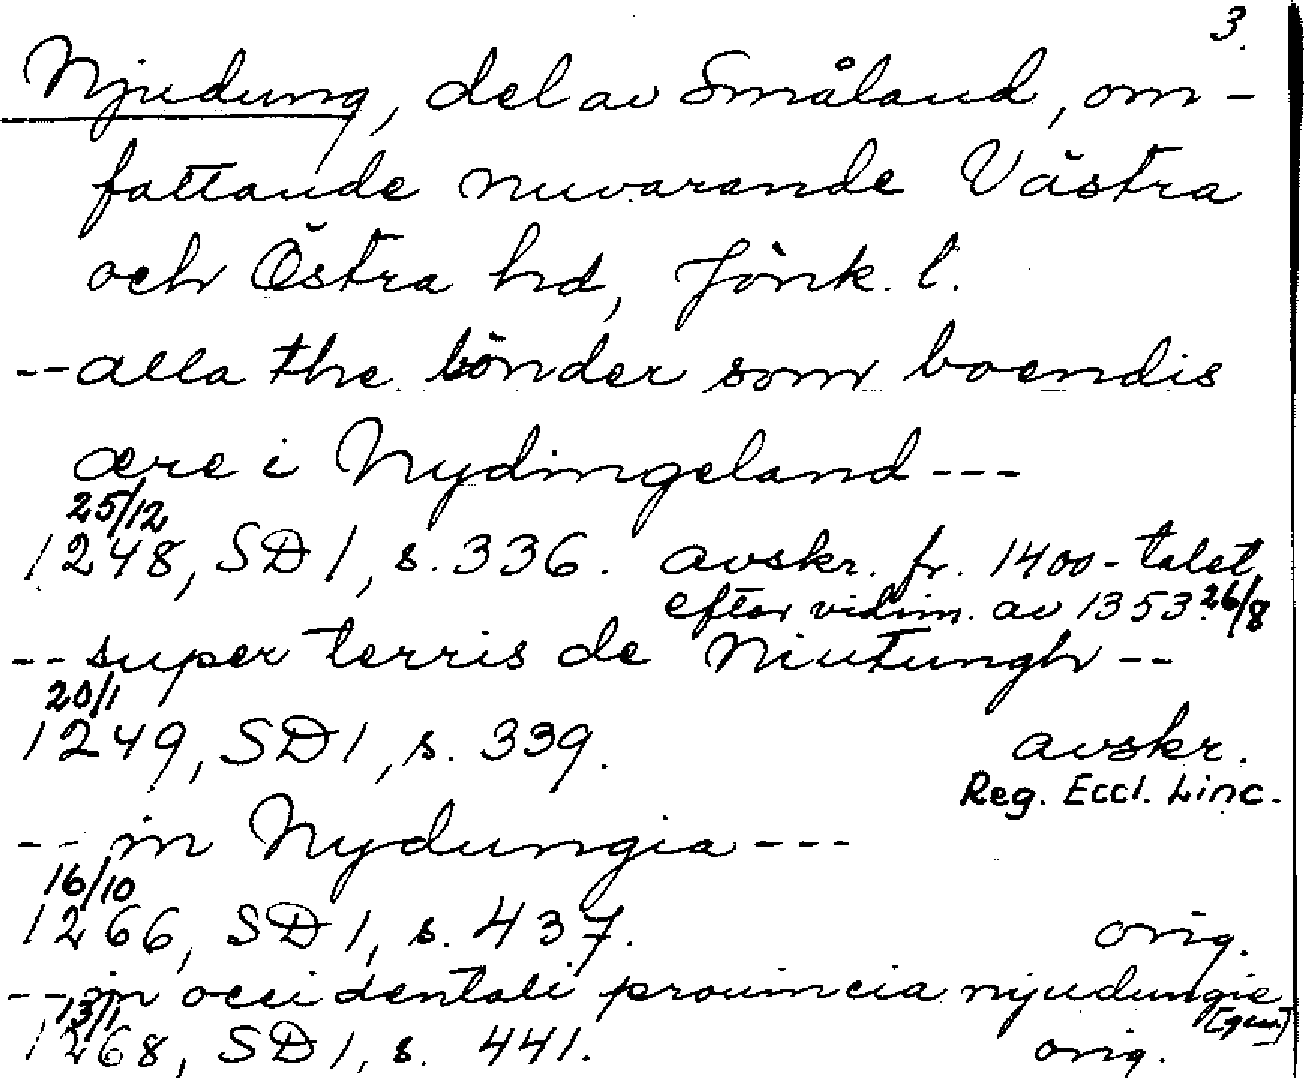 3.
Njudung, del av Småland, om-
fattande nuvarande Västra
och Östra hd, Jönk. l.
--alla the bönder som boendis
ære i Nydingeland---
25/12
1248, SD 1, s. 336. avskr. fr. 1400-talet
efter vidim. av 1353 26/8
--super terris de Niutungh--
20/1
1249, SD 1, s. 339. avskr.
Reg. Eccl. Linc.
--in Nydungia---
16/10
1266, SD 1, s. 437. orig.
--in occidentali prouincia njudungie
13/1 [gen]
1268, SD 1, s. 441. orig.